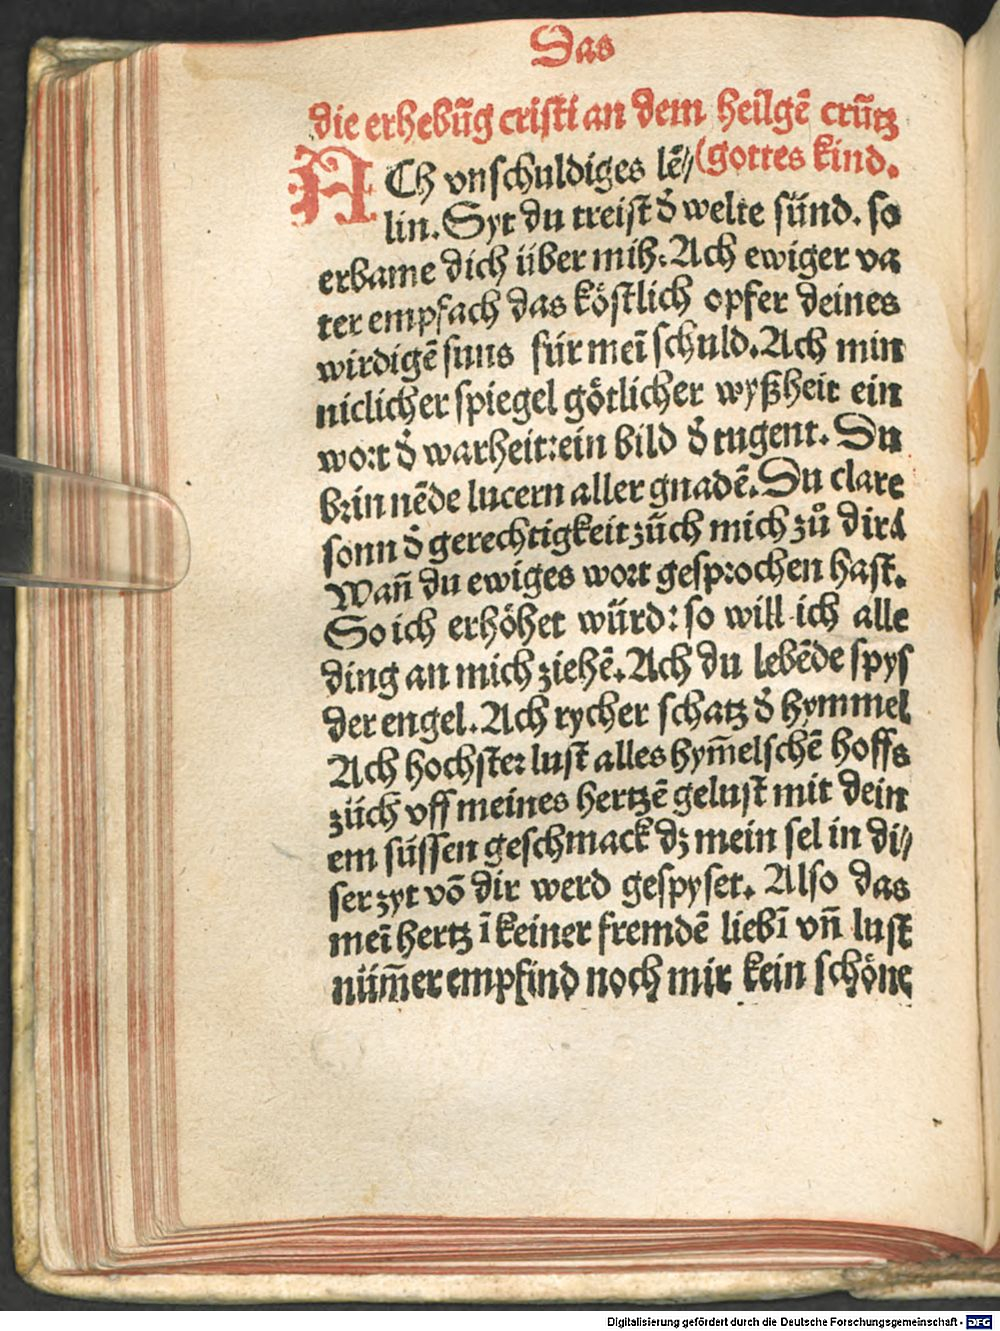 Das
die erhebūg cristi an dem heilgē crütz
ACh vnschuldiges lē⸗ (gottes kind.
lin. Syt du treist d̕ welte sünd. so
erbame dich über mih. Ach ewiger va
ter empfach das köstlich opfer deines
wirdigē suns für meī schuld. Ach min
niclicher spiegel götlicher wyßheit ein
wort d̕ warheit: ein bild d̕ tugent. Du
brin nēde lucern aller gnadē. Du clare
sonn d̕ gerechtigkeit zűch mich zů dir
Wañ du ewiges wort gesprochen hast.
So ich erhöhet würd: so will ich alle
ding an mich ziehē. Ach du lebēde spys
der engel. Ach rycher schatz d̕ hymmel
Ach hochster lust alles hym̄elschē hoffs
züch vff meines hertzē gelust mit dein
em süssen geschmack dz mein sel in di⸗
ser zyt vō dir werd gespyset. Also das
meī hertz ī keiner fremdē liebī vñ lust
nüm̄er empfind noch mir kein schöne
Digitalisierung gefördert durch die Deutsche Forschungsgemeinschaft - DFG